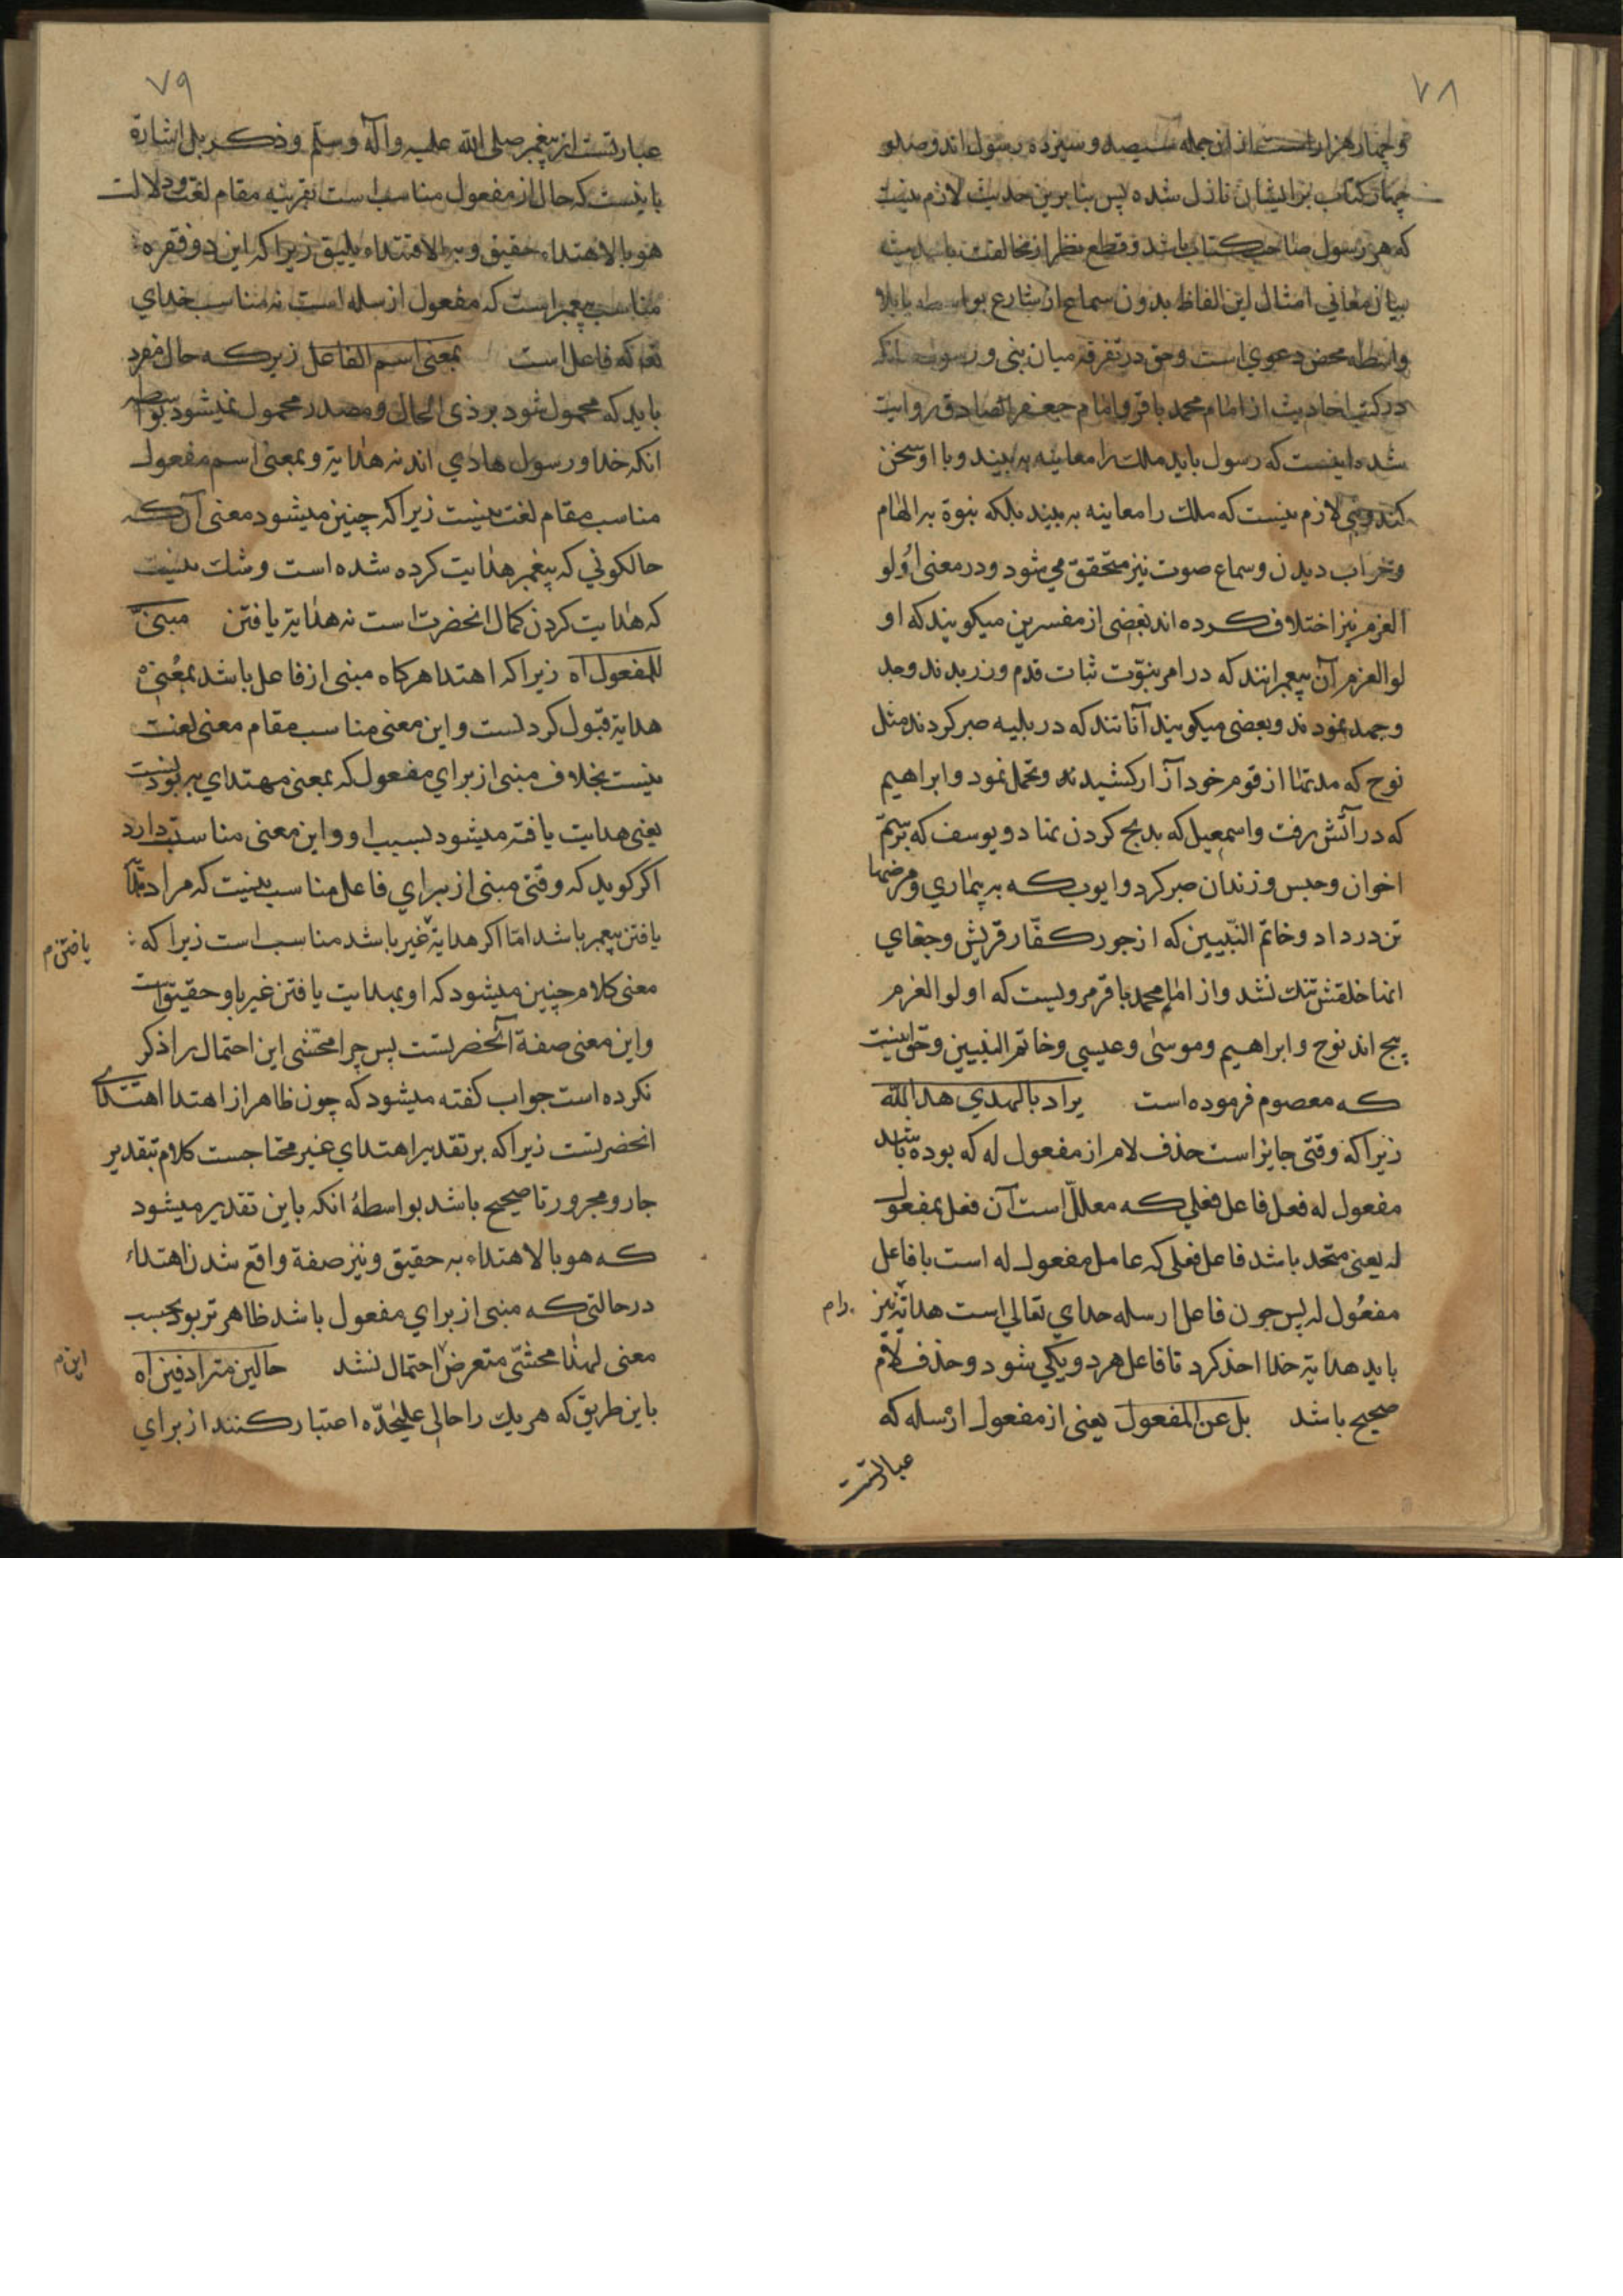 ۷۸
و چهار هزار است از ان جمله سیصد و سیزده رسول اند و صد و
چهار کتاب بر ایشان نازل شده پس بنا برین حدیث لازم نیست
که هر رسول صاحب کتاب باشد و قطع نظر از مخالفت با حدیث
بیان معانی امثال این الفاظ بدون سماع از شارع بواسطه یا بلا
واسطه محض دعوی است و حق در تفرقه میان نبی و رسول انکه
در کتب احادیث از امام محمد باقر و امام جعفر الصادق روایت
شده اینست که رسول باید ملک را معاینه به بیند و با او سخن
کند و نبی لازم نیست که ملک را معاینه به بیند بلکه نبوة به الهام
و خواب دیدن و سماع صوت نیز متحقق می شود و در معنی اولو
العزم نیز اختلاف کرده اند بعضی از مفسرین میکویند که او
لو العزم آن پیغمبرانند که در امر نبوّت ثبات قدم ورزیدند وجد
وجهد نمودند و بعضی میکویند آنانند که در بلیه صبر کردند مثل
نوح که مدتها از قوم خود آزار کشیدند و تحمل نمود و ابراهیم
که در آتش رفت و اسمعیل که بذبح کردن تن داد و یوسف که بر ستم
اخوان و حبس و زندان صبر کرد و ایوب که به بیماری و مرضها
تن در داد و خاتم النّبیین که از جور کفّار قریش و جفای
انها خلقش تنک نشد و از امام محمد باقر مرویست که اولو العزم
پنج اند نوح و ابراهیم و موسی و عیسی و خاتم النبیین و حق اینست
که معصوم فرموده است یراد بالهدی هدایة الله
زیرا که وقتی جایز است حذف لام از مفعول له که بوده باشد
مفعول له فعل فاعل فعلی که معلّل است آن فعل بمفعول
له یعنی متحد باشد فاعل فعلی که عامل مفعول له است با فاعل
مفعول له پس چون فاعل ارسله خدای تعالی است هدایة نیز
باید هدایة خدا اخذ کرد تا فاعل هر دو یکی شود و حذف لام
صحیح باشد بل عن المفعول یعنی از مفعول ارسله که
عبارتست
۷۹
عبارتست از پیغمبر صلی الله علیه و آله و سلّم و ذکر بل اشارة
باینست که حال از مفعول مناسب است بقرینه مقام لغت و دلالت
هو بالاهتداء حقیق و به الاقتداء یلیق زیرا که این دو فقره
مناسب پیغمبر است که مفعول ارسله است نه مناسب خدای
تعا که فاعل است بمعنی اسم الفاعل زیر که حال مفرد
باید که محمول شود بر ذی الحال و مصدر محمول نمیشود بواسطه
انکه خدا و رسول هادی اند نه هدایة و بمعنی اسم مفعول
مناسب مقام لغت نیست زیرا که چنین میشود معنی آن که
حالکونی که پیغمبر هدایت کرده شده است و شک نیست
که هدایت کردن کمال انحضرت است نه هدایة یافتن مبنیّ
للمفعول اه زیرا که اهتدا هرکاه مبنی از فاعل باشد بمعنی
هدایة قبول کردنست و این معنی مناسب مقام معنی لغت
نیست بخلاف مبنی از برای مفعول که بمعنی مهتدای به بودنست
یعنی هدایت یافته میشود بسبب او و این معنی مناسبت دارد
اکر کوید که وقتی مبنی از برای فاعل مناسب نیست که مراد هدایة
یافتن پیغمبر باشد امّا اکر هدایة غیر باشد مناسب است زیرا که
یافتن م
معنی کلام چنین میشود که او بهدایت یافتن غیر باو حقیق است
و این معنی صفة آنحضرتست پس چرا محشّی این احتمال را ذکر
نکرده است جواب کفته میشود که چون ظاهر از اهتدا اهتدای
انحضرتست زیرا که بر تقدیر اهتدای غیر محتاجست کلام بتقدیر
جار و مجرور تا صحیح باشد بواسطهٔ انکه باین تقدیر میشود
که هو بالاهتداء به حقیق و نیز صفة واقع شدن اهتداء
در حالتی که مبنی از برای مفعول باشد ظاهرتر بود بحسب
معنی لهذا محشّی متعرض احتمال نشد حالین مترادفین اه
این م
باین طریق که هر یک را حالی علیحدّه اعتبار کنند از برای